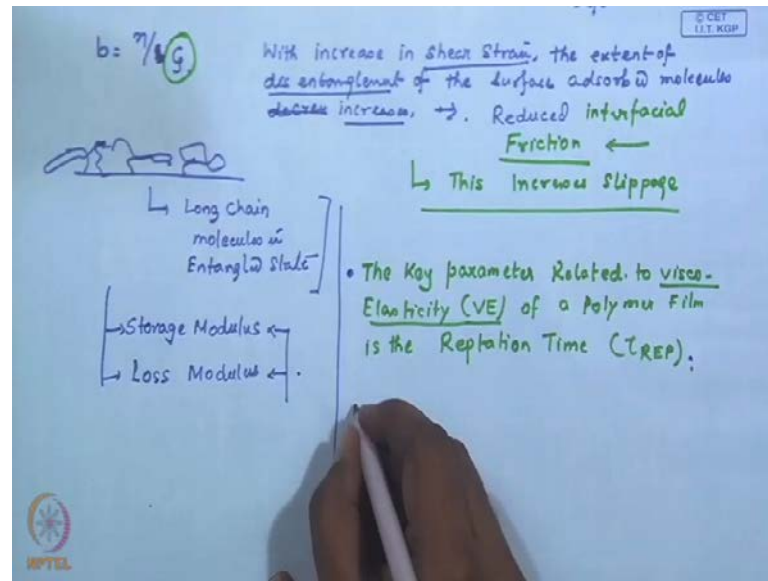 © CET
I.I.T. KGP
b = η/ζ
With increase in Shear Strain, the extent of
disentanglement of the surface adsorbed molecules
increases. →. Reduced interfacial
Friction ←
↳ This Increases Slippage
↳ Long Chain
molecules in
Entangled State
→ Storage Modulus ←
→ Loss Modulus ←.
• The Key parameter Related to visco-
Elasticity (VE) of a Polymer Film
is the Reptation Time (τREP).
NPTEL